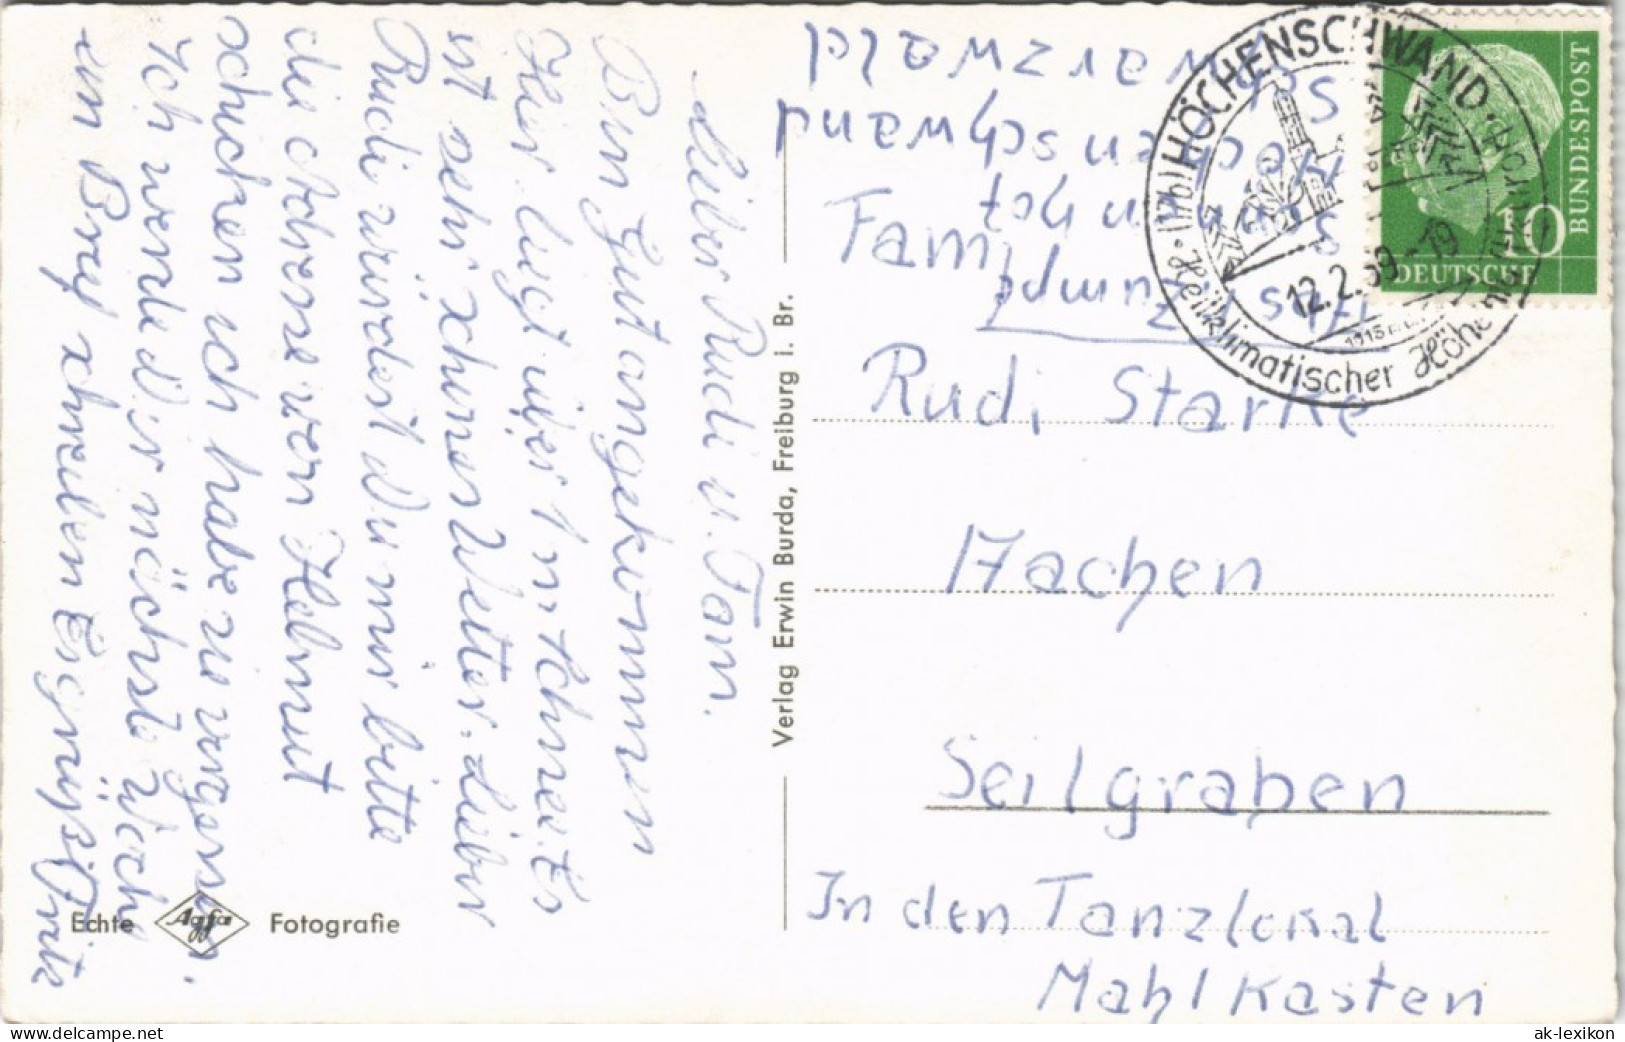 Lieber Rudi u. Fam.
Bin gut angekommen
Hier liegt über 1 m Schnee. Es
ist sehr schönes Wetter. Lieber
Rudi würdest Du mir bitte
die Adresse von Helmut
schicken ich habe sie vergessen.
Ich werde dir nächste Woche
ein Brief schreiben Es grüßt Fritz
Echte Agfa Fotografie
Verlag Erwin Burda, Freiburg i. Br.
Schwarzwald
Höchenschwand
Familie
Rudi Starke
Aachen
Seilgraben
In den Tanzlokal
Mahlkasten
HÖCHENSCHWAND
Heilklimatischer
12.2.59.-19
1015 m
DEUTSCHE
BUNDESPOST
10
delcampe.net
ak-lexikon